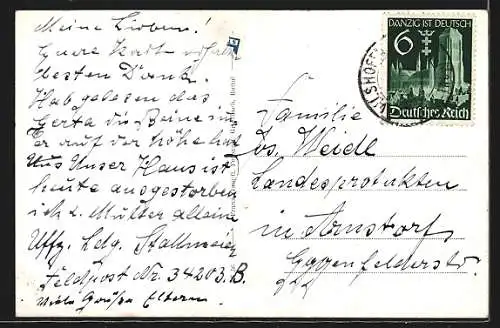 Meine Lieben!
Eure Karte erhalten
besten Dank.
Hab gelesen das
Gerta die Beine in
er auf der höhe hat
Uns Unser Haus ist
heute ausgestorben
ich u. Mutter allein
Uffz. Ldg. Stallmeier
Feldpost Nr. 34203.B.
Viele Grüße Eltern
DANZIG IST DEUTSCH
6
Deutsches Reich
VILSHOFEN
Familie
Jos. Weidl
Landesprodukten
in Arnstorf
Eggenfelderstr.